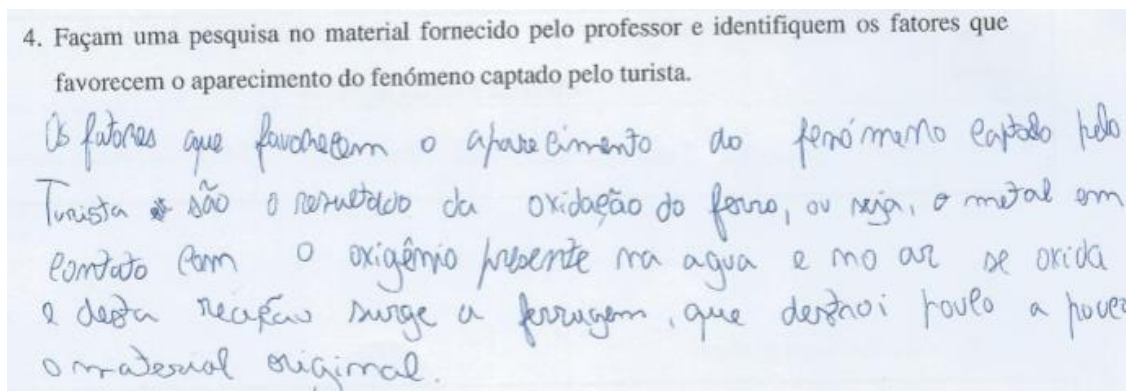 4. Façam uma pesquisa no material fornecido pelo professor e identifiquem os fatores que
favorecem o aparecimento do fenómeno captado pelo turista.
Os fatores que favorecem o aparecimento do fenómeno captado pelo
Turista são o resultado da oxidação do ferro, ou seja, o metal em
contato com o oxigênio presente na agua e no ar se oxida
e desta reação surge a ferrugem, que destroi pouco a pouco
o material original.